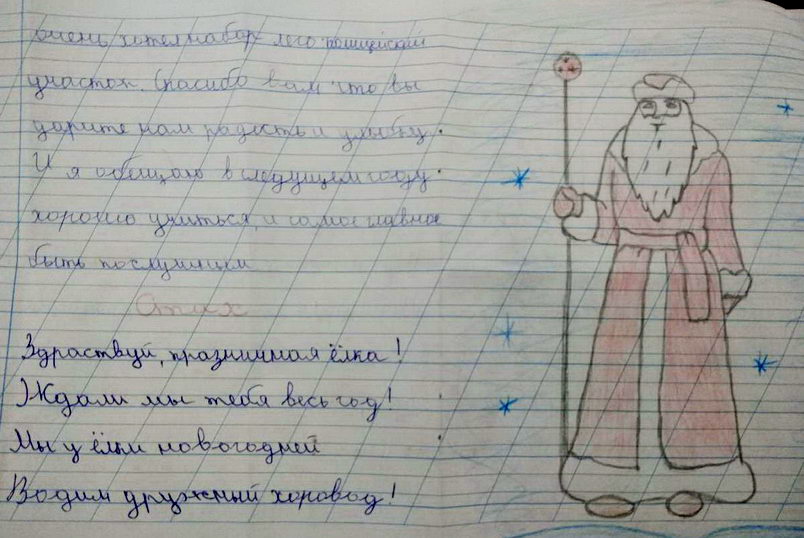 очень хотел набор лего полицейский
участок. Спасибо вам что вы
дарите нам радость и улыбку.
И я обещаю в следущем году
хорошо учиться, и самое главное
быть послушным
Стих
Здраствуй, празничная ёлка!
Ждали мы тебя весь год!
Мы у ёлки новогодней
Водим дружный хоровод!